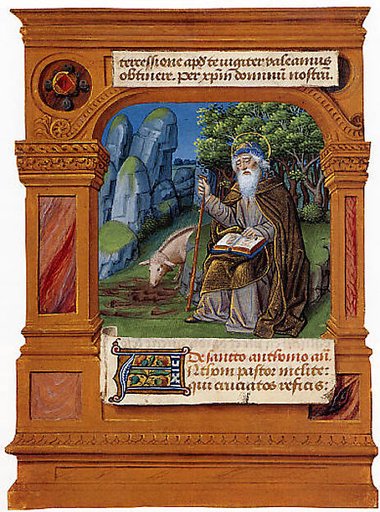 tercessione apd te iugiter valeamus
obtinere. Per xpm dominum nostrū.
De sancto anthonio añ.
ANthoni pastor inclite:
qui cruciatos reficis: